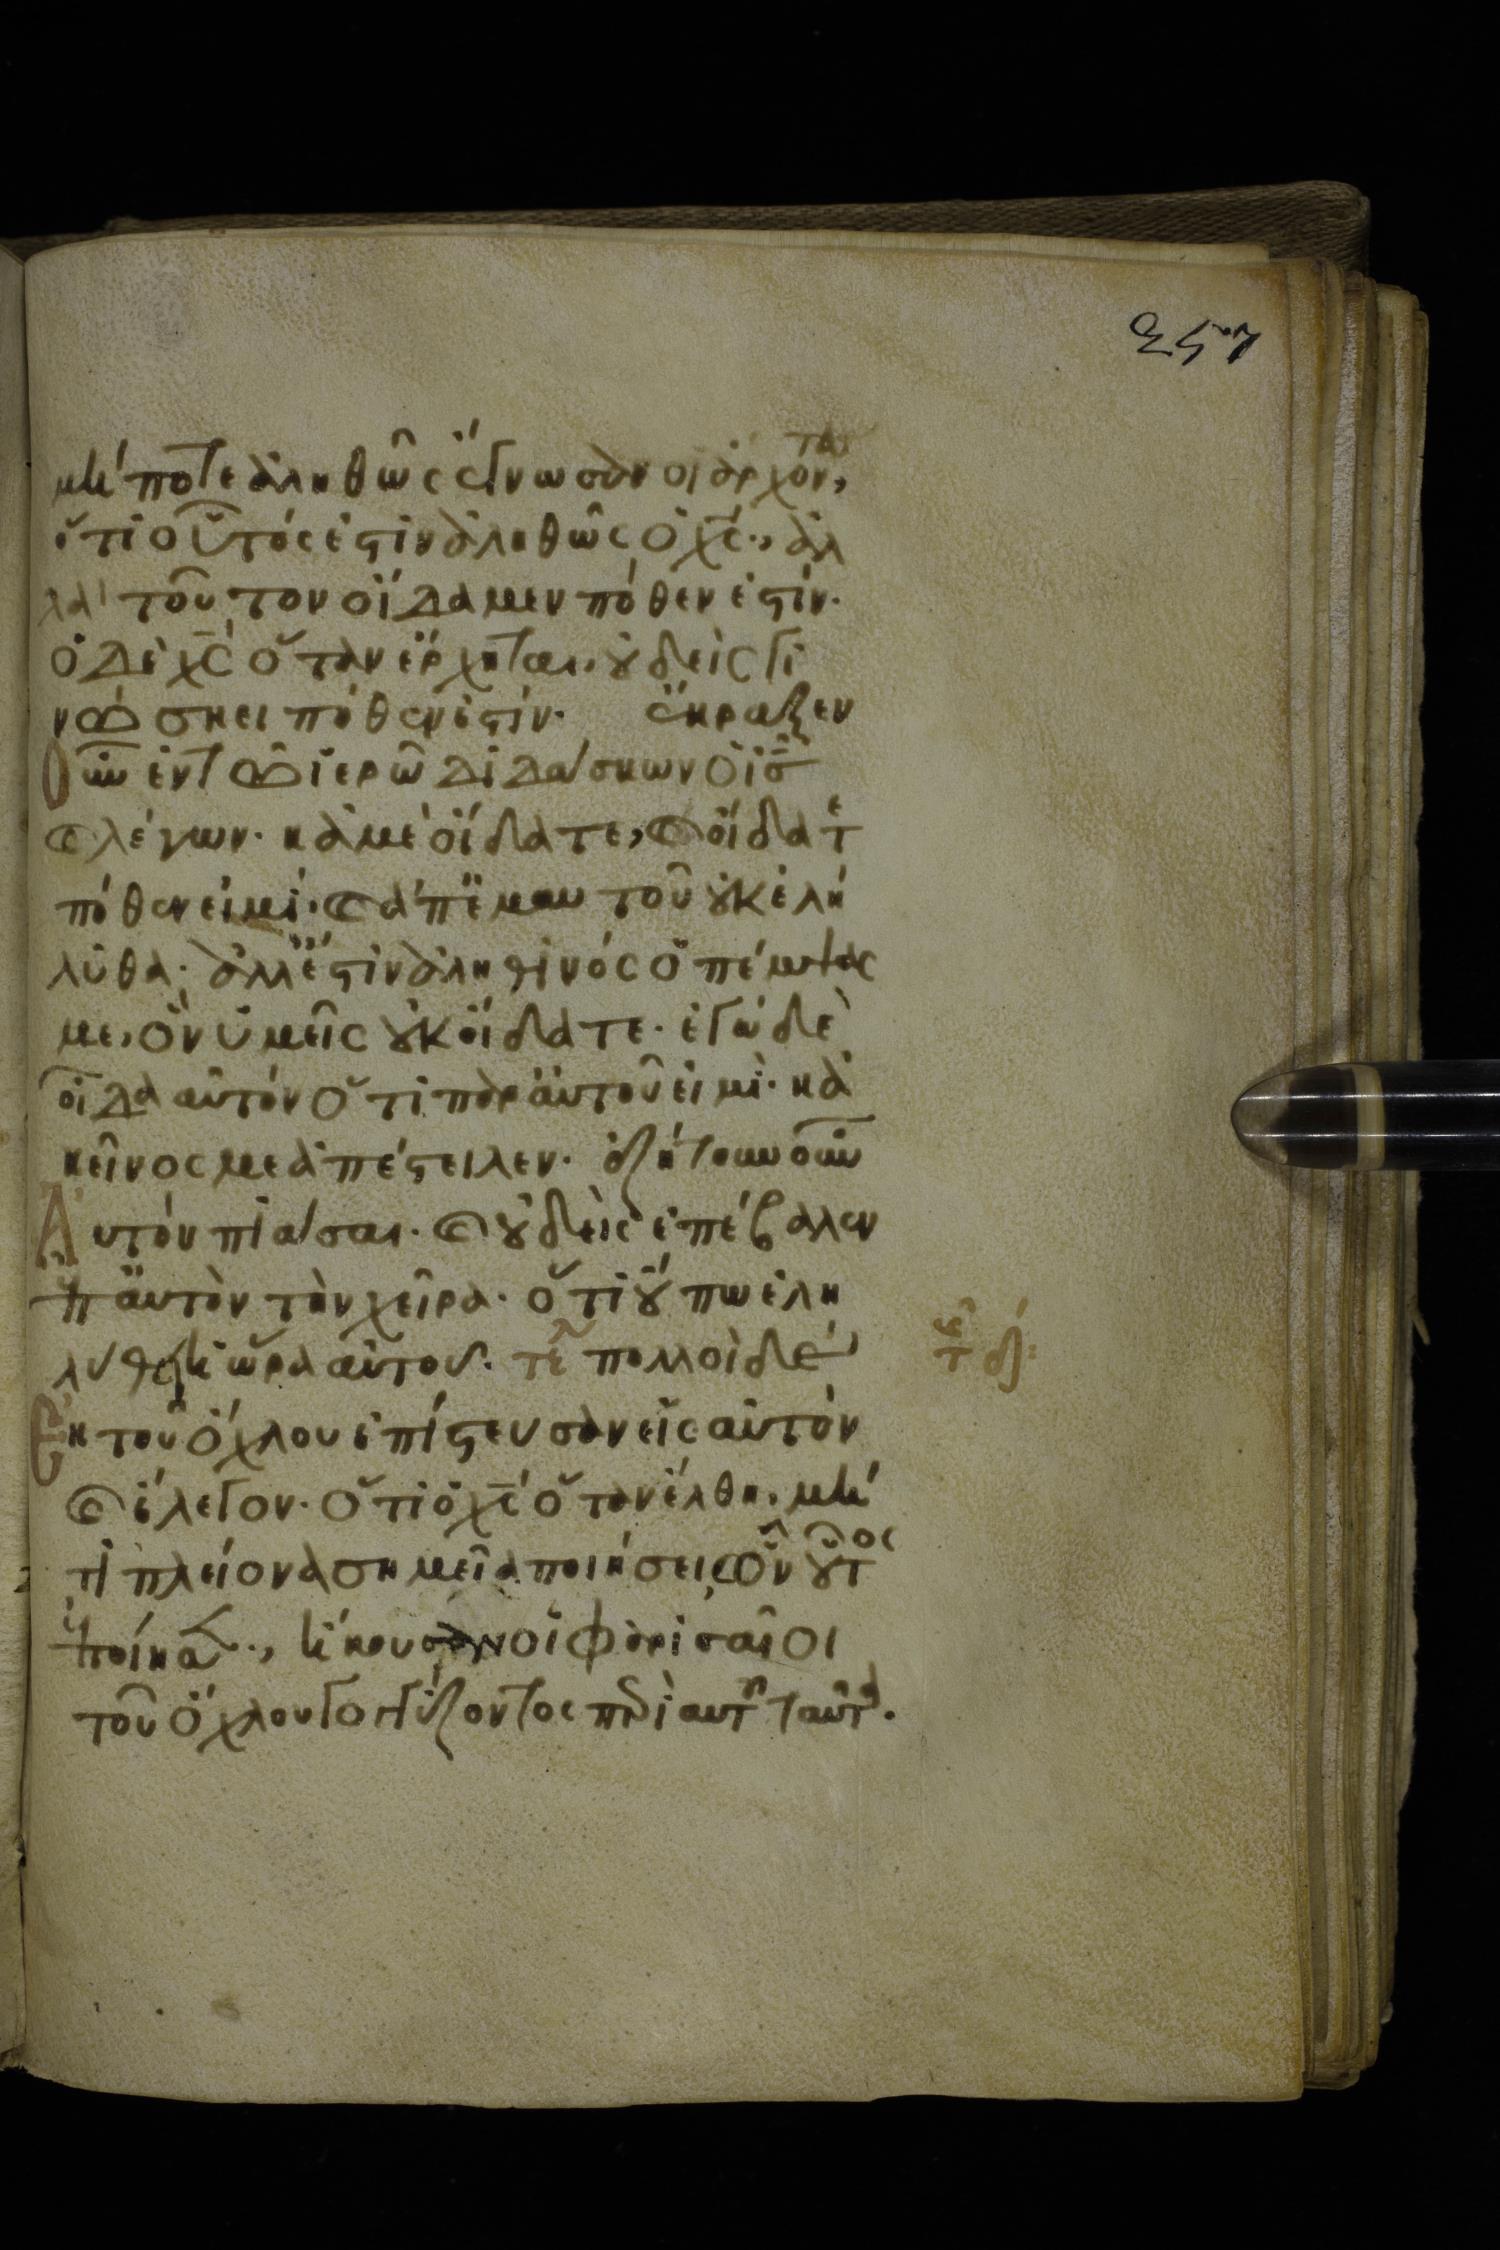 253
μήποτε ἀληθῶς ἔγνωσαν οἱ ἄρχοντες,
ὅτι οὗτός ἐστιν ἀληθῶς ὁ χς̅., ἀλ
λὰ τοῦτον οἴδαμεν πόθεν ἐστίν.
ὁ δὲ χς̅ ὅταν ἔρχηται, οὐδεὶς γι
νώσκει πόθεν ἐστίν. ἔκραξεν
οὖν ἐν τῶ ἱερῶ διδάσκων ὁ ις̅
καὶ λέγων. κἀμὲ οἴδατε, καὶ οἴδατε
πόθεν εἰμί. καὶ ἀπ' ἐμαυτοῦ οὐκ ἐλή
λυθα. ἀλλ' ἔστιν ἀληθινὸς ὁ πέμψας
με, ὃν ὑμεῖς οὐκ οἴδατε. ἐγὼ δὲ
οἶδα αὐτόν ὅτι παρ' αὐτοῦ εἰμι. κἀ
κεῖνος με ἀπέστειλεν. ἐζήτουν οὖν
Αὐτὸν πιάσαι. καὶ οὐδεὶς ἐπέβαλεν
ἐπ' αὐτὸν τὴν χεῖρα. ὅτι οὔπω ἐλη
λύθει ἡ ὥρα αὐτοῦ. τε πολλοὶ δὲ
Ἐκ τοῦ ὄχλου ἐπίστευσαν εἰς αὐτὸν
καὶ ἔλεγον. ὅτι ὁ χς̅ ὅταν ἔλθη, μή
τι πλείονα σημεῖα ποιήσει ὧν οὗτος
ἐποίησεν., ἤκουσαν οἱ φαρισαῖοι
τοῦ ὄχλου γογγύζοντος περὶ αὐτοῦ ταῦτα.